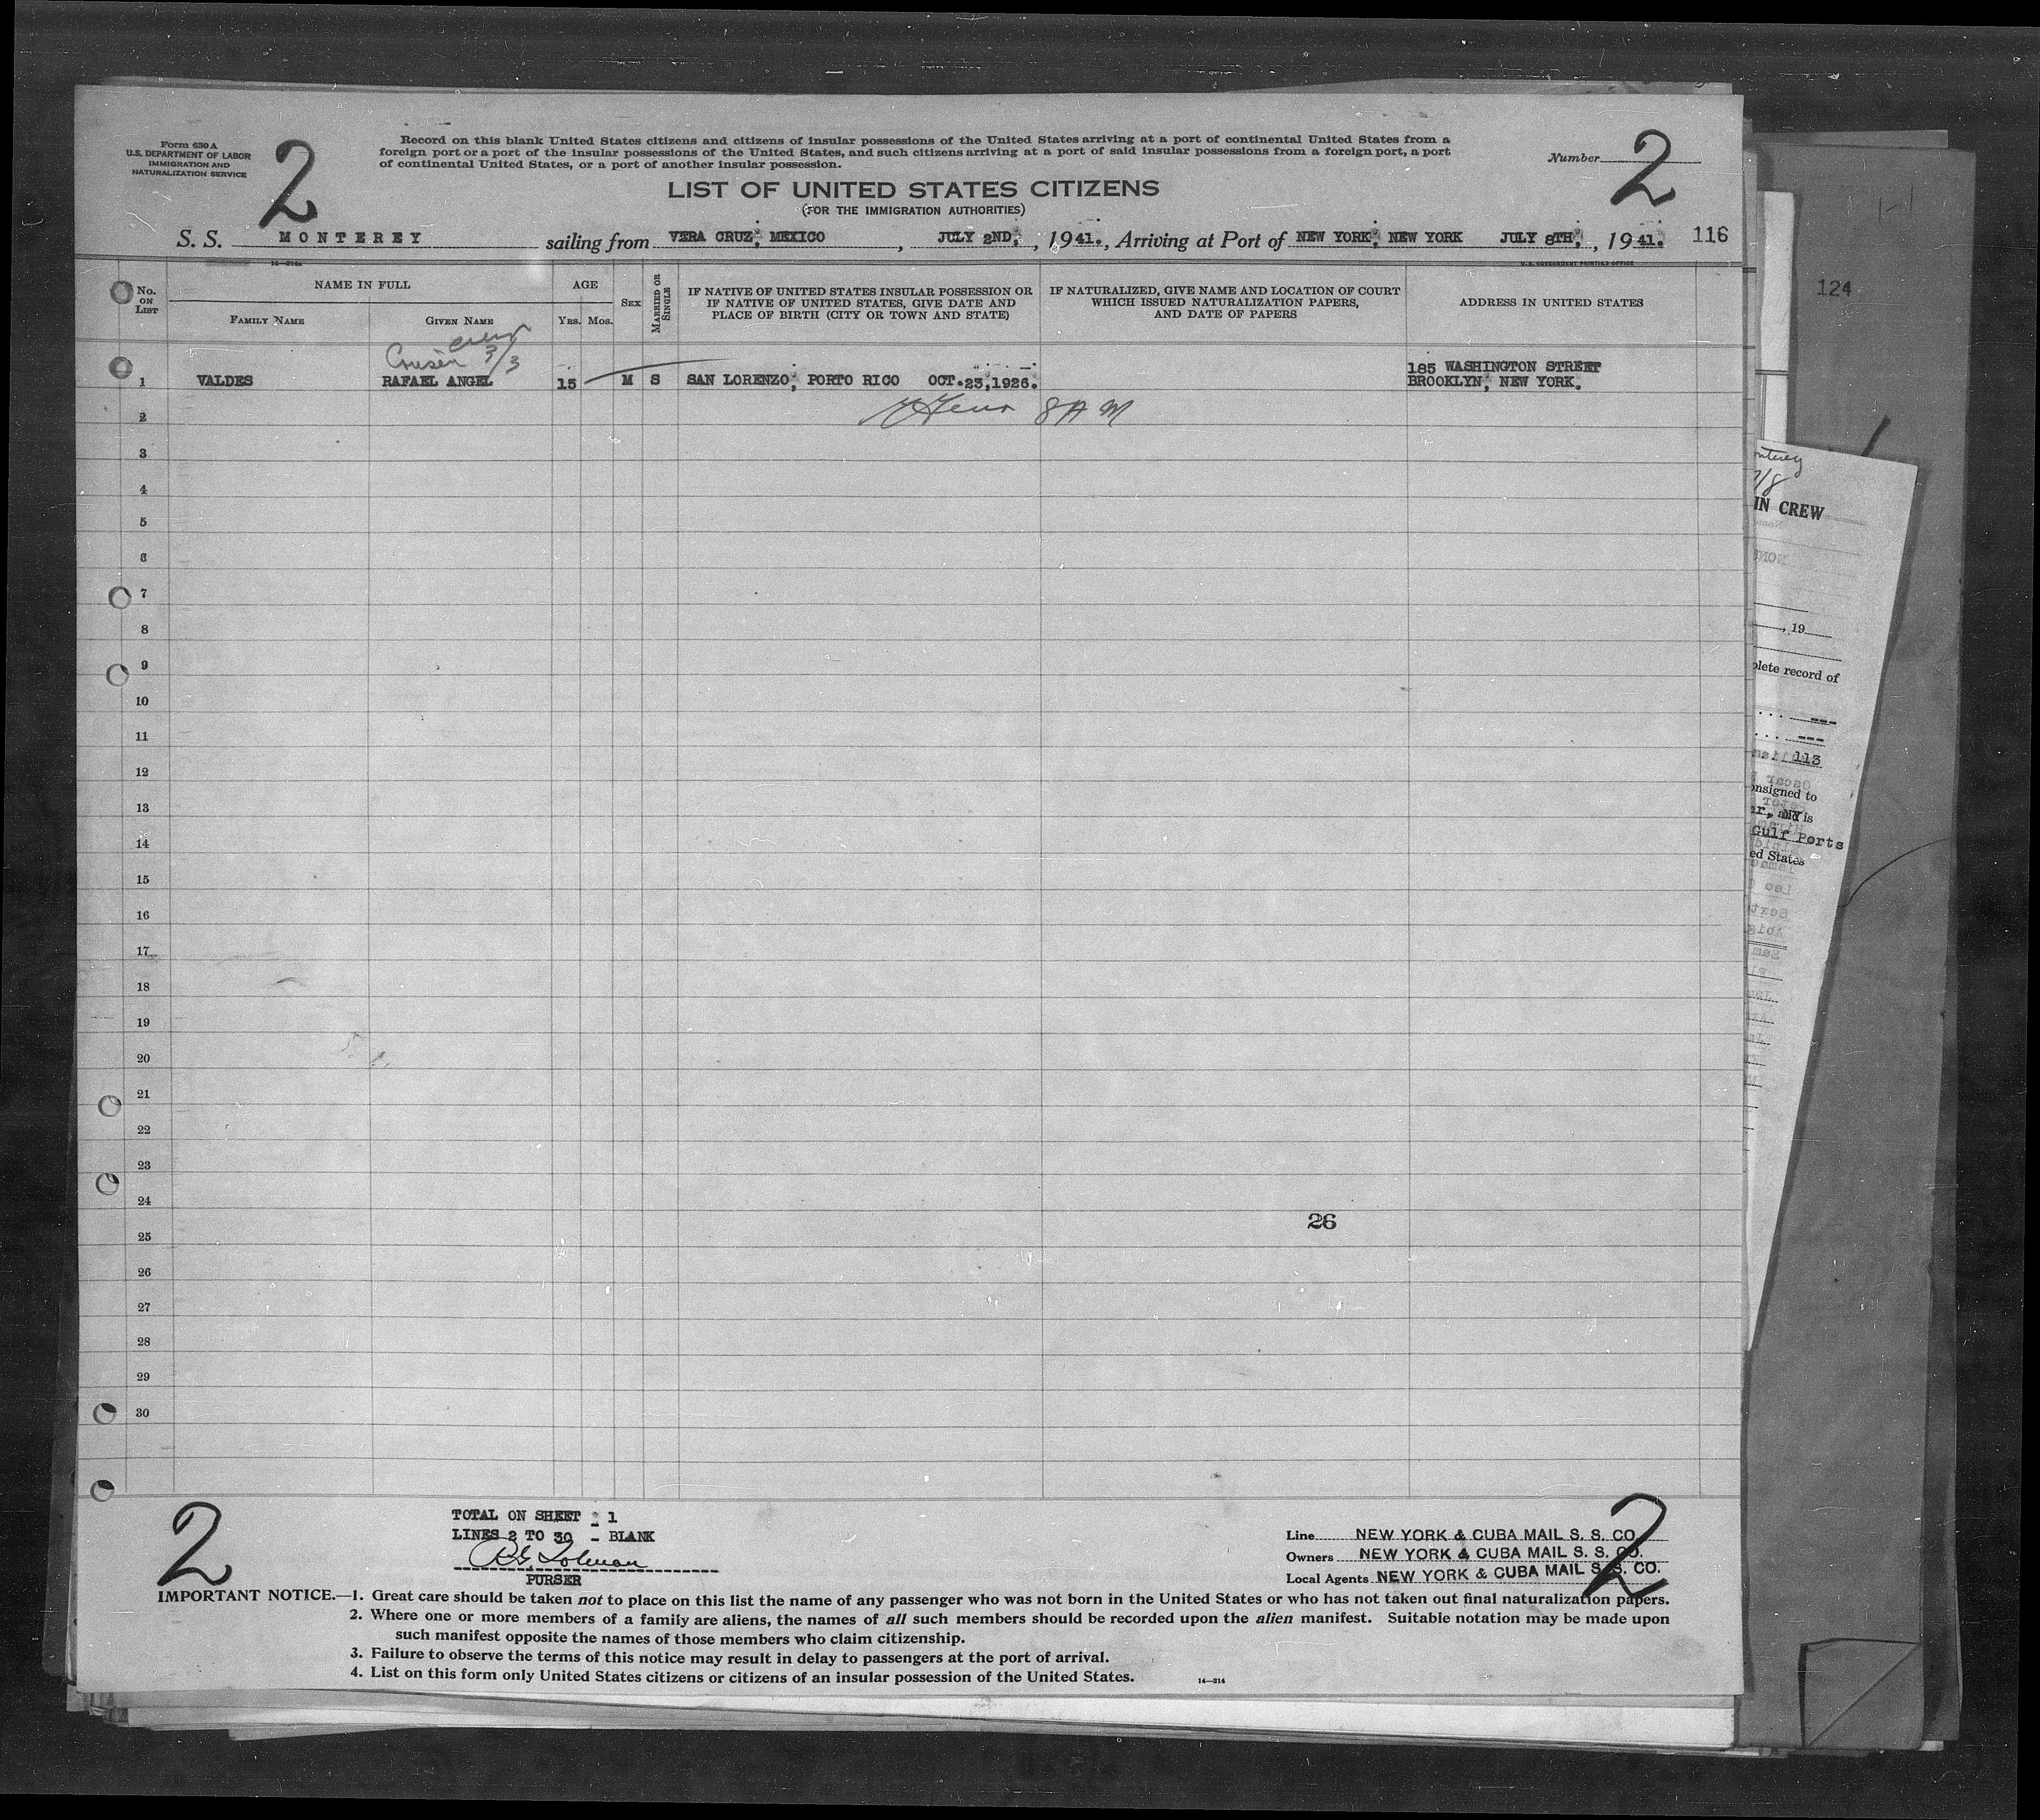 Form 630 A
U.S. DEPARTMENT OF LABOR
IMMIGRATION AND
NATURALIZATION SERVICE
2
Record on this blank United States citizens and citizens of insular possessions of the United States arriving at a port of continental United States from a
foreign port or a port of the insular possessions of the United States, and such citizens arriving at a port of said insular possessions from a foreign port, a port
of continental United States, or a port of another insular possession.
Number 2
LIST OF UNITED STATES CITIZENS
(FOR THE IMMIGRATION AUTHORITIES)
S. S. MONTEREY sailing from VERA CRUZ, MEXICO, JULY 2ND, , 1941., Arriving at Port of NEW YORK, NEW YORK JULY 8TH, , 1941. 116
14—214a
U.S. GOVERNMENT PRINTING OFFICE
No. ON LIST
NAME IN FULL
FAMILY NAME
GIVEN NAME
AGE
Yrs. Mos.
SEX
MARRIED OR SINGLE
IF NATIVE OF UNITED STATES INSULAR POSSESSION OR
IF NATIVE OF UNITED STATES, GIVE DATE AND
PLACE OF BIRTH (CITY OR TOWN AND STATE)
IF NATURALIZED, GIVE NAME AND LOCATION OF COURT
WHICH ISSUED NATURALIZATION PAPERS,
AND DATE OF PAPERS
ADDRESS IN UNITED STATES
3/3
185 WASHINGTON STREET
1 VALDES RAFAEL ANGEL 15 M S SAN LORENZO, PORTO RICO OCT.23,1926. BROOKLYN, NEW YORK.
2 8 A M
3
4
5
6
7
8
9
10
11
12
13
14
15
16
17
18
19
20
21
22
23
24
26
25
26
27
28
29
30
2
TOTAL ON SHEET - 1
LINES 2 TO 30 - BLANK
PURSER
Line NEW YORK & CUBA MAIL S. S. CO.
Owners NEW YORK & CUBA MAIL S. S. CO.
Local Agents NEW YORK & CUBA MAIL S. S. CO.
2
IMPORTANT NOTICE.—1. Great care should be taken not to place on this list the name of any passenger who was not born in the United States or who has not taken out final naturalization papers.
2. Where one or more members of a family are aliens, the names of all such members should be recorded upon the alien manifest. Suitable notation may be made upon
such manifest opposite the names of those members who claim citizenship.
3. Failure to observe the terms of this notice may result in delay to passengers at the port of arrival.
4. List on this form only United States citizens or citizens of an insular possession of the United States.
14—214
124
IN CREW
, 19
plete record of
113
onsigned to
and is
Gulf Ports
ed States